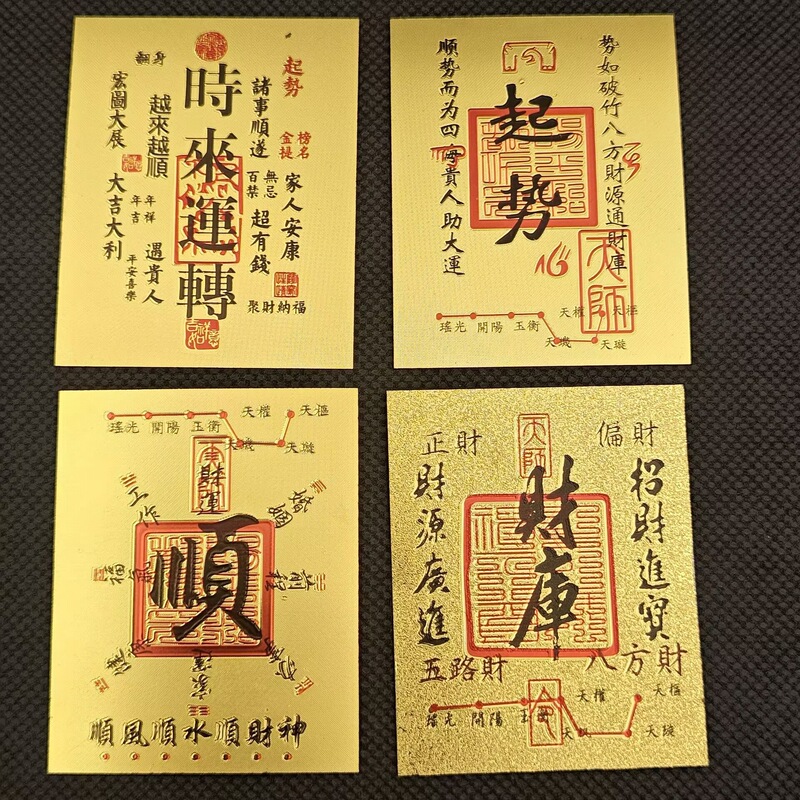 起勢
諸事順遂
金榜提名
百無禁忌
家人安康
超有錢
聚財納福
時來運轉
翻身
越來越順
宏圖大展
年年吉祥
大吉大利
遇貴人
平安喜樂
吉祥如意
势如破竹八方財源通財庫
起势
順势而为四海貴人助大運
天師
天樞
天璇
天璣
天權
玉衡
開陽
瑤光
瑤光
開陽
玉衡
天權
天樞
天機
天璇
財運
婚姻
工作
順
福氣
前程
健康
家運
順風順水順財神
天師
偏財
招財進寶
八方財
財庫
正財
財源廣進
五路財
瑤光
開陽
玉衡
天權
天樞
天璇